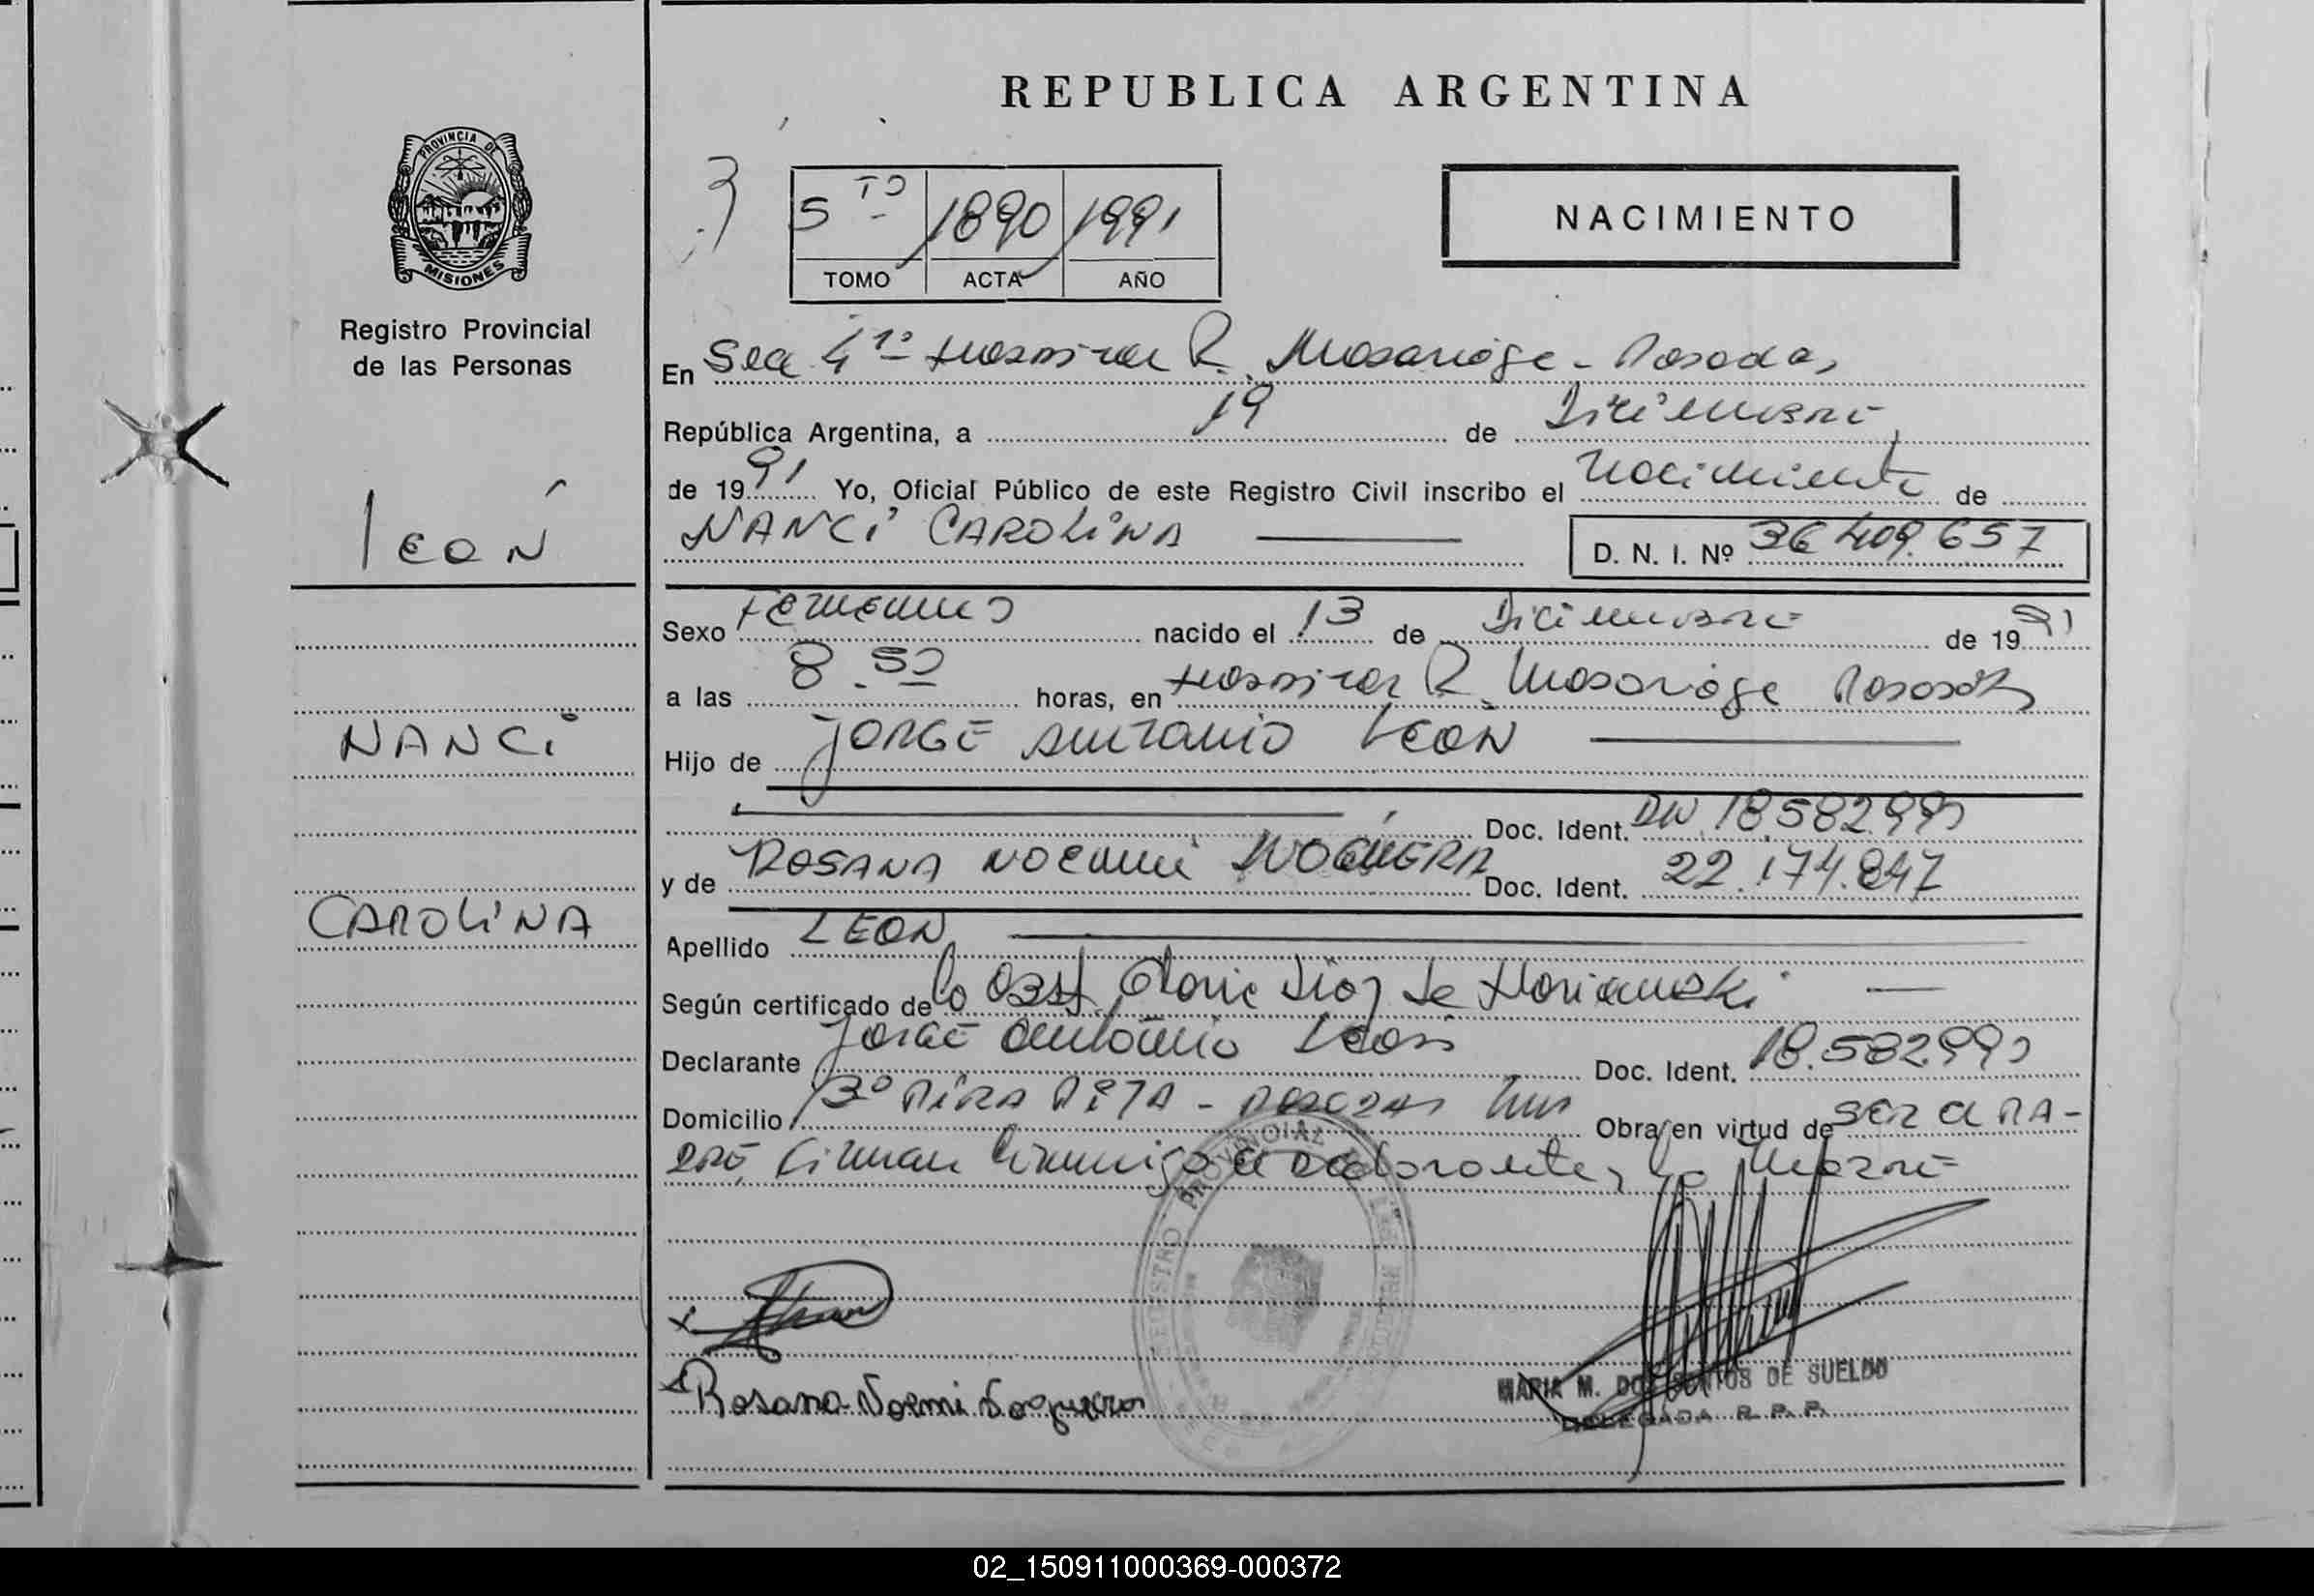 REPUBLICA ARGENTINA
PROVINCIA DE
MISIONES
Registro Provincial
de las Personas
5 TO 1890 1991
TOMO ACTA AÑO
NACIMIENTO
En Sec 4ta Hospital R. Madariaga - Posadas
República Argentina, a 19 de Diciembre
de 1991 Yo, Oficial Público de este Registro Civil inscribo el nacimiento de
NANCI CAROLINA
D. N. I. Nº 36.409.657
León
NANCI
CAROLINA
Sexo Femenino nacido el 13 de Diciembre de 1991
a las 8.50 horas, en Hospital R. Madariaga Posadas
Hijo de JORGE ANTONIO LEON
Doc. Ident. DNI 18.582.990
y de ROSANA NOEMI NOGUERA Doc. Ident. 22.174.847
Apellido LEON
Según certificado de la Obst
Declarante Jorge Antonio Leon Doc. Ident. 18.582.990
Domicilio Bº PIRA PITA - POSADAS Mns Obra en virtud de ser el PA-
DRE, Firman Conmigo el declarante y la Madre
REGISTRO PROVINCIAL
Rosana Noemi Noguera
MARIA M. DOS SANTOS DE SUELDO
DELEGADA R. P. P.
02_150911000369-000372